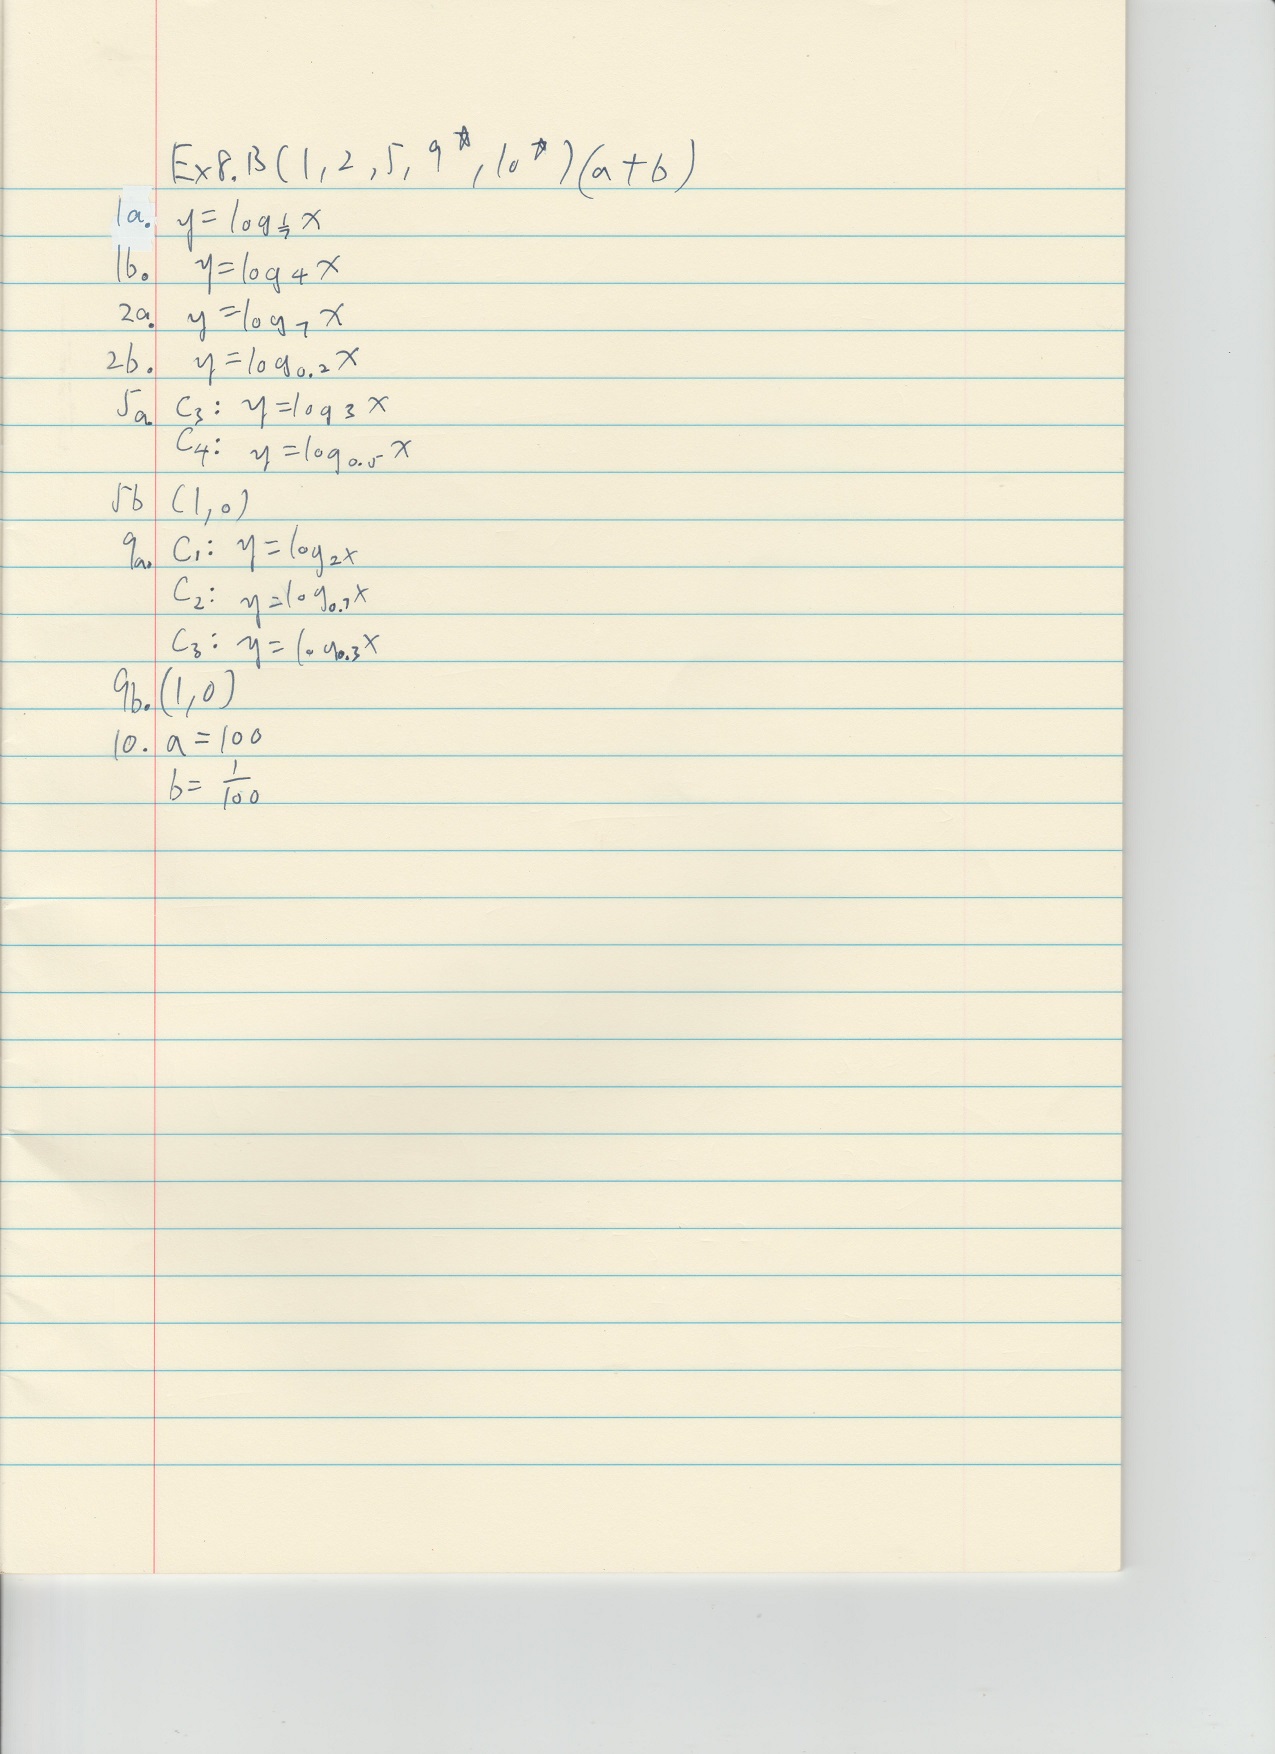 Ex8.B(1,2,5,9*,10*)(a+b)
1a. y=log 1/7 x
1b. y=log 4 x
2a. y=log 7 x
2b. y=log 0.2 x
5a C3: y=log 3 x
C4: y=log 0.5 x
5b (1,0)
9a. C1: y=log 2 x
C2: y=log 0.7 x
C3: y=log 0.3 x
9b. (1,0)
10. a=100
b= 1/100